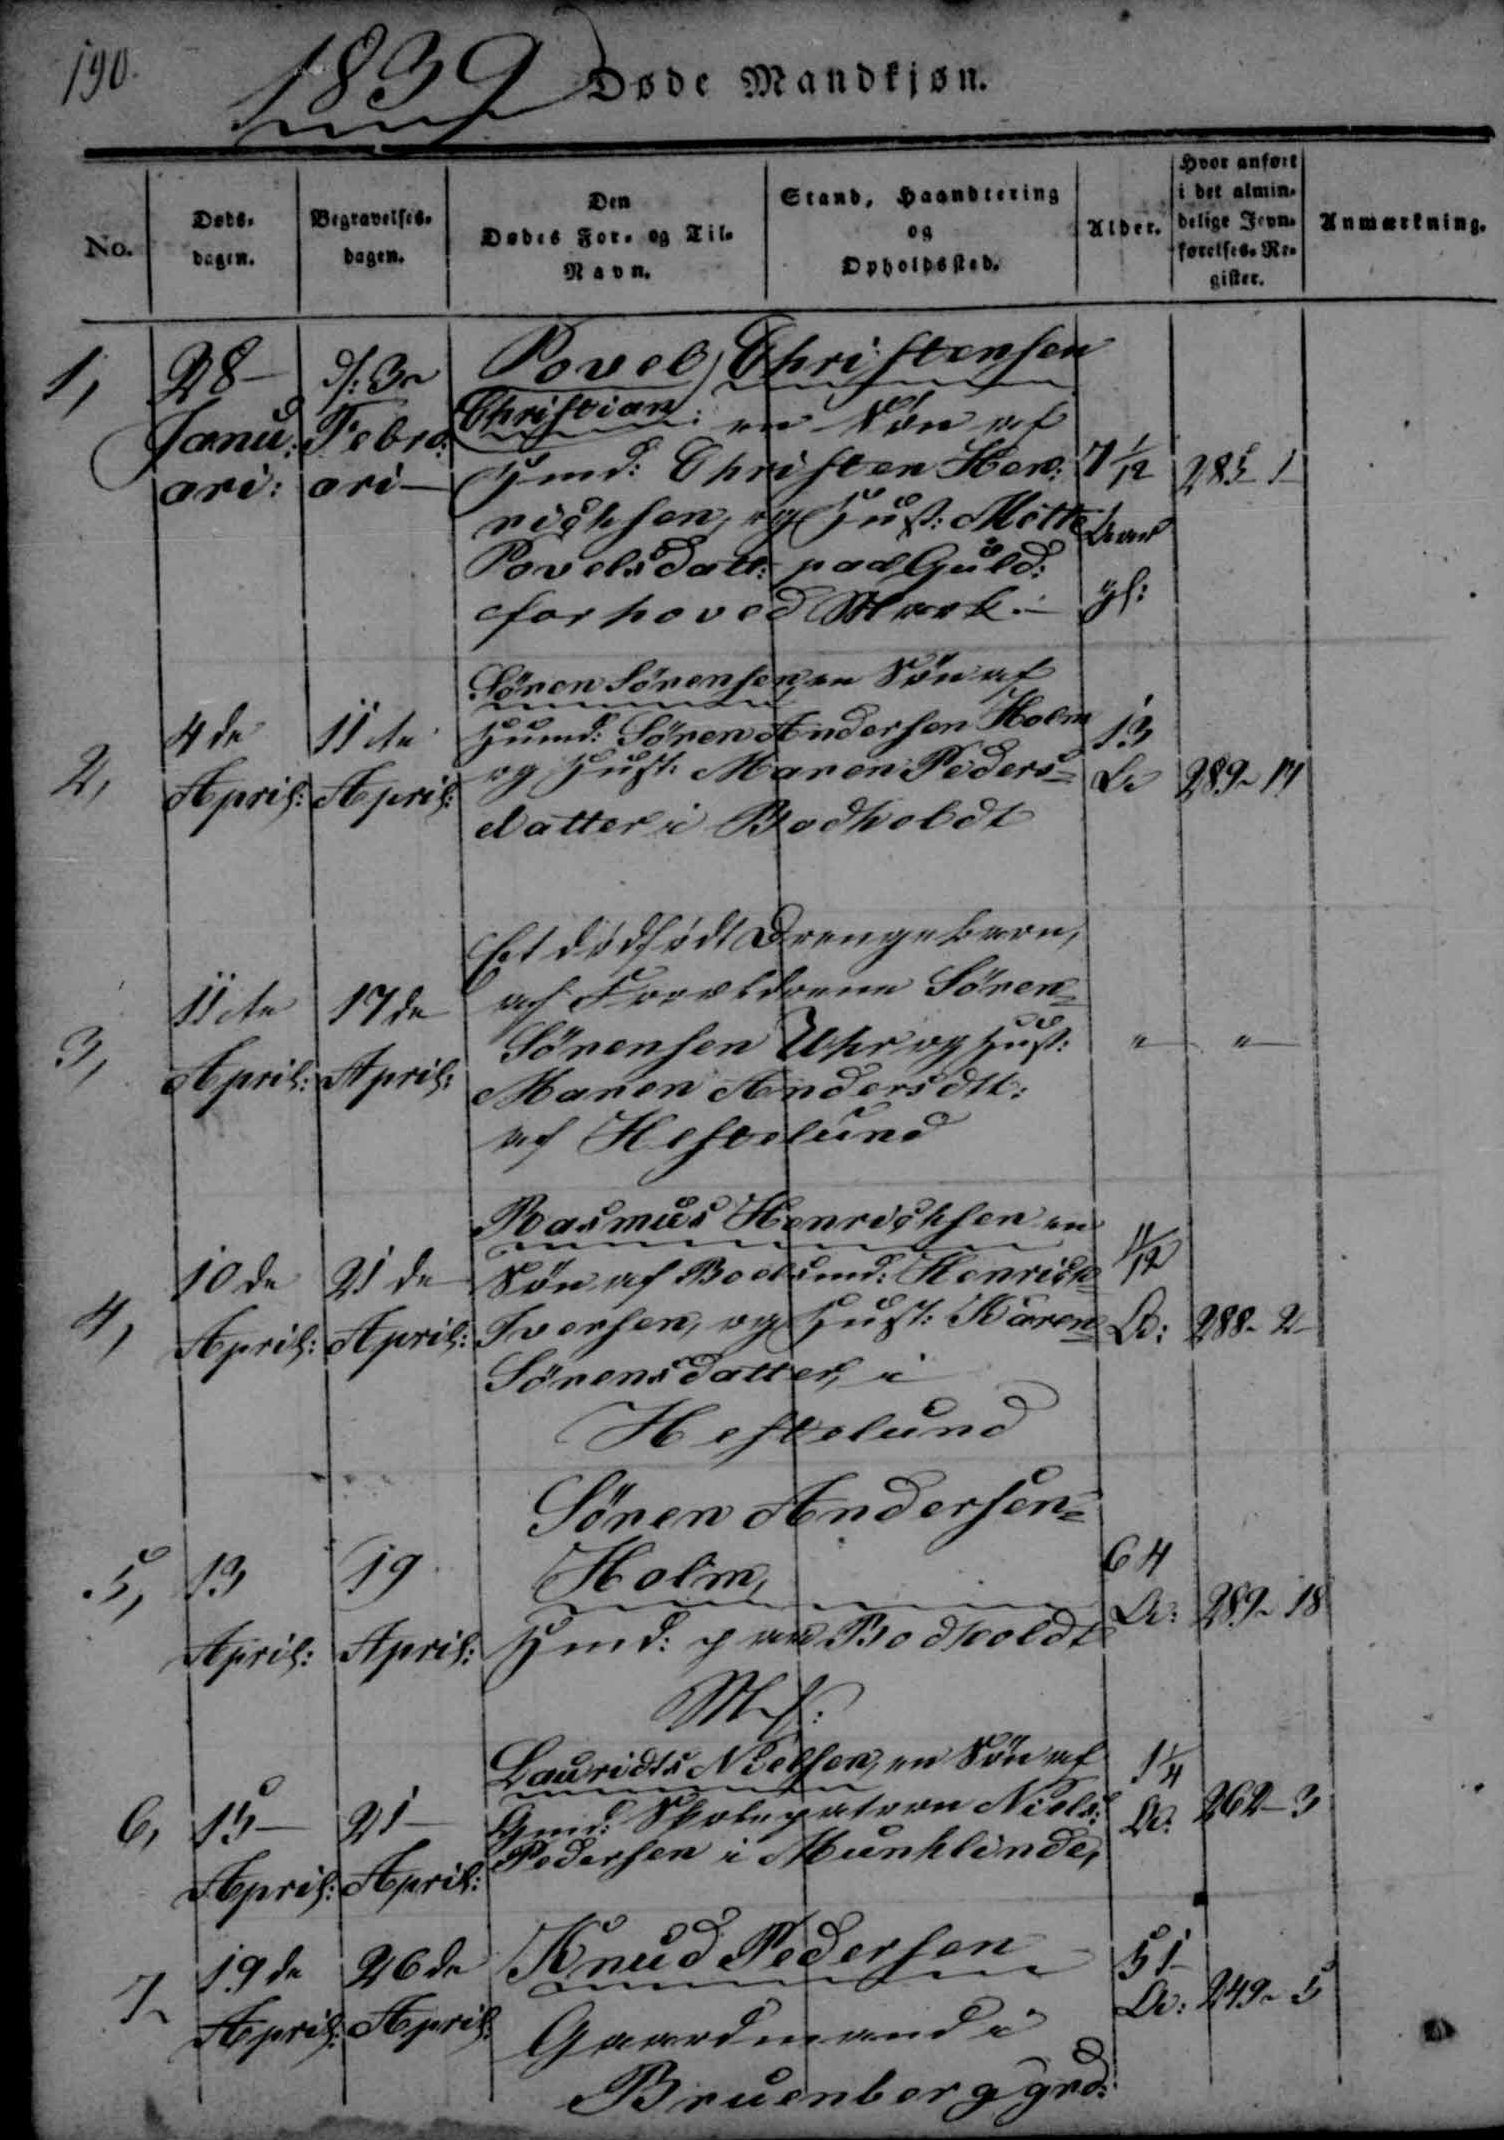 190.
1839 Døde Mandkjøn.
No.
Døds-
dagen.
Begravelses-
dagen.
Den
Dødes For- og Til-
Navn.
Stand, Haandtering
og
Opholdssted.
Alder.
Hvor anført
i det almin-
delige Jevn-
førelses-Re-
gister.
Anmærkning.
1,
28-
Janu:
ari:
d: 3
Febru:
ari-
Povel Christensen
Christian: en Søn af
Hmd: Christen Hen:
richsen, og Hust: Mette
Povelsdatt: paa Guld:
forhoved Mark.-
7 1/12
Aar
gl:
285-1
2,
4de
April:
11te
April:
Sören Sörensen, en Søn af
Huusmd: Sören Andersen Holm
og Hust: Maren Peders=
datter i Bodholdt
13
A
289-17
3,
11te
April:
17de
April:
Et dödfödt Drengebarn,
af Forældrene Sören=
Sörensen Uhr og Hust:
Maren Andersdtt:
af Hestelund
"
"
4,
10de
April:
21de
April:
Rasmus Henrichsen en
Søn af Boelsmd: Henrich
Iversen, og Hust: Karen=
Sörensdatter, i
Hestelund
11/12
A:
288-2-
5,
13
April:
19
April:
Sören Andersen=
Holm,
Hmd: paa Bodholdt
M:
64
A:
289-18
6,
15-
April:
21-
April:
Lauridts Nielsen, en Søn af
Gmd: Skolepatron Niels:
Pedersen i Munklinde,
1 1/4
A:
262-3
7-
19de
April:
26de
April:
Knud Pedersen
Gaardmand i
Bruenberggrd:
51-
A:
249-5